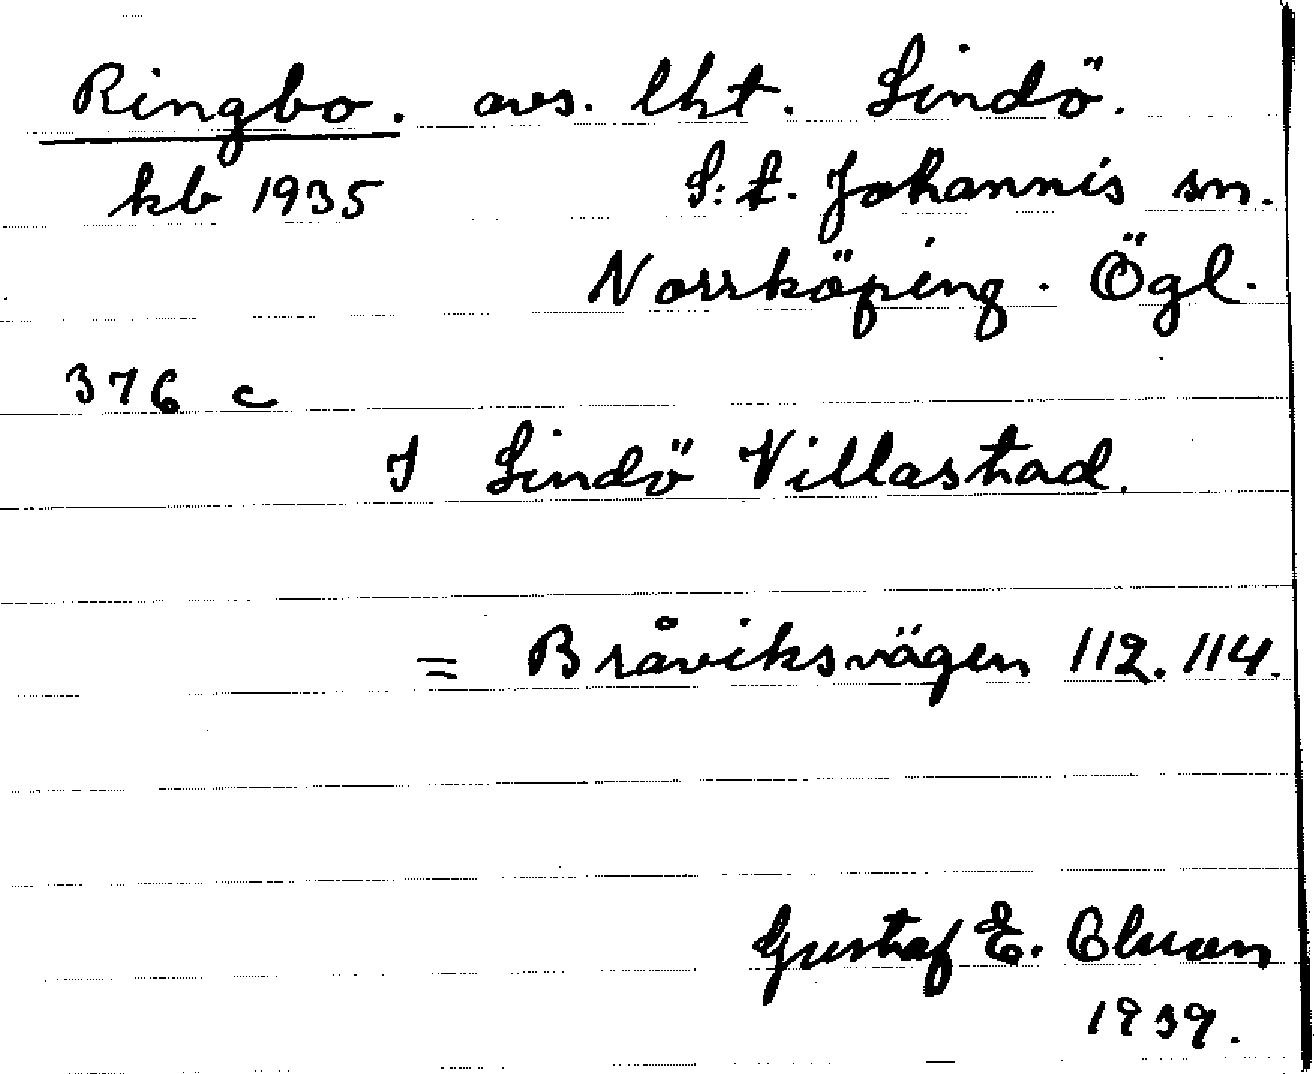 Ringbo. avs. lht. Lindö.
kb 1935 S:t. Johannis sn.
Norrköping. Ögl.
376 c
I Lindö Villastad.
= Bråviksvägen 112. 114.
Gustaf E.
1939.